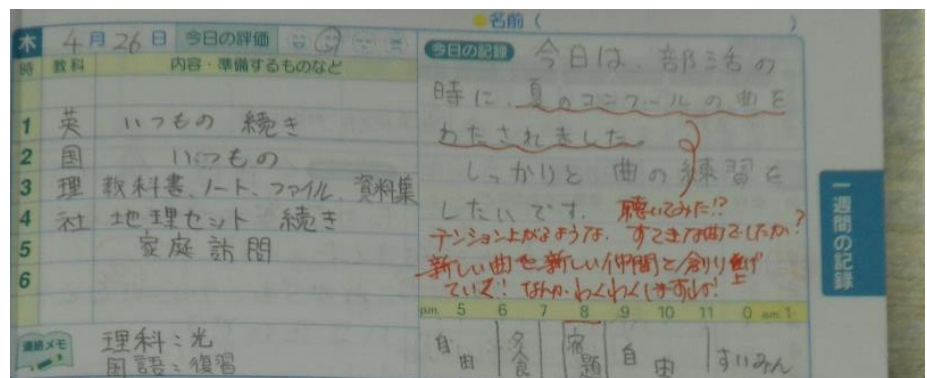 名前（　　　）
木 4月26日 今日の評価
時 教科 内容・準備するものなど
1 英 いつもの 続き
2 国 いつもの
3 理 教科書、ノート、ファイル、資料集
4 社 地理セット 続き
5 家庭訪問
6
連絡メモ 理科：光
国語：復習
今日の記録 今日は、部活の
時に、夏のコンクールの曲を
わたされました。
しっかりと 曲の練習を
したいです。 聴いてみた!?
テンション上がるような、すてきな曲でしたか？
新しい曲を新しい仲間と創り上げ
ていく！なんか、わくわくしますね！
p.m. 5 6 7 8 9 10 11 0 a.m. 1
自由 夕食 宿題 自由 すいみん
一週間の記録